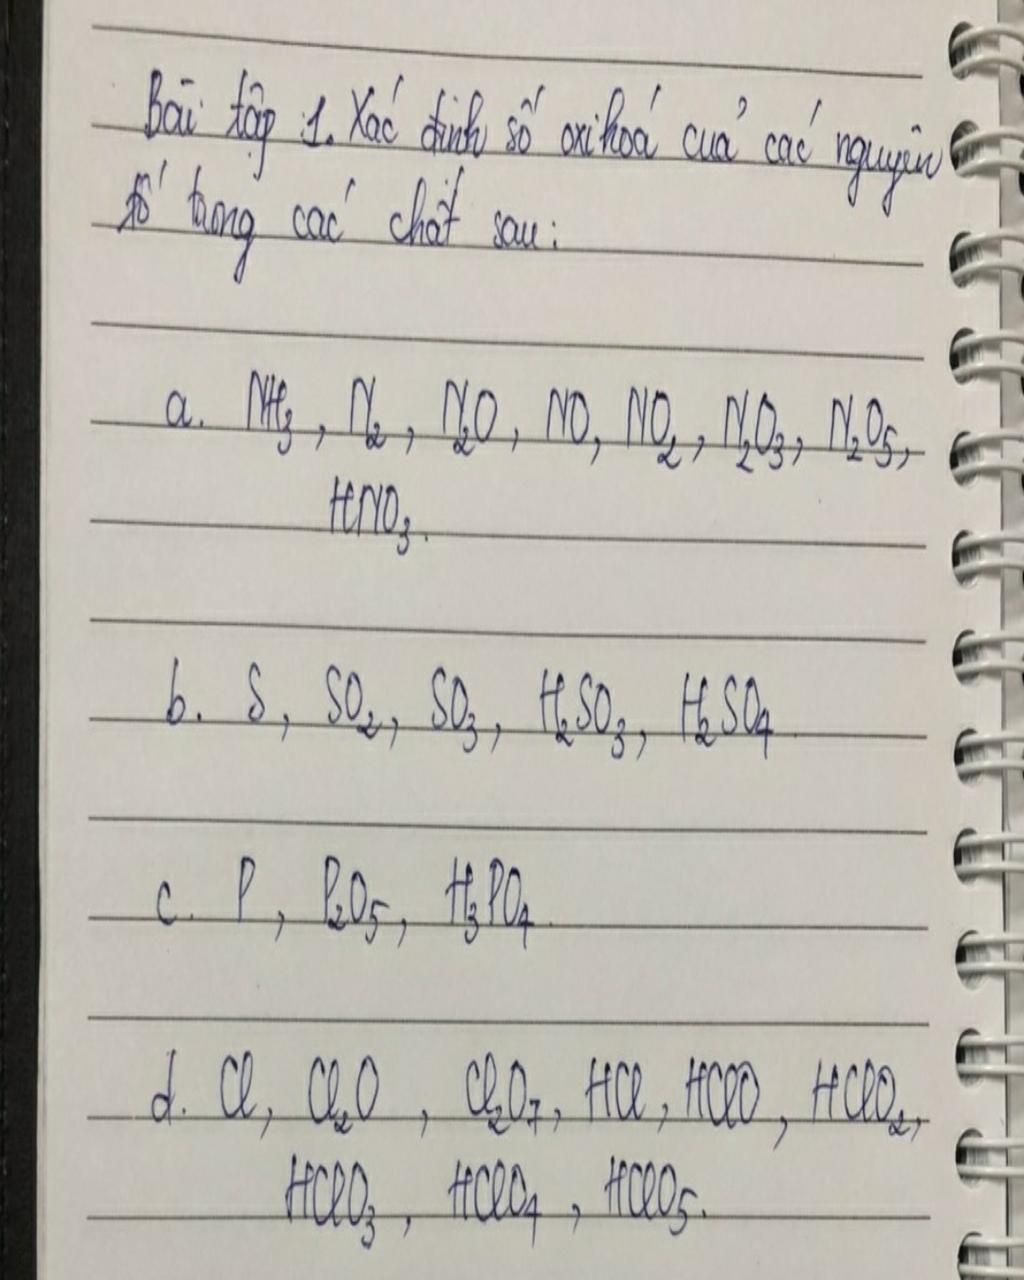 Bài tập 1. Xác định số oxi hoá của các nguyên
tố trong các chất sau:
a. NH₃, N₂, N₂O, NO, NO₂, N₂O₃, N₂O₅,
HNO₃.
b. S, SO₂, SO₃, H₂SO₃, H₂SO₄
c. P, P₂O₅, H₃PO₄.
d. Cl, Cl₂O, Cl₂O₇, HCl, HClO, HClO₂,
HClO₃, HClO₄, HClO₅.